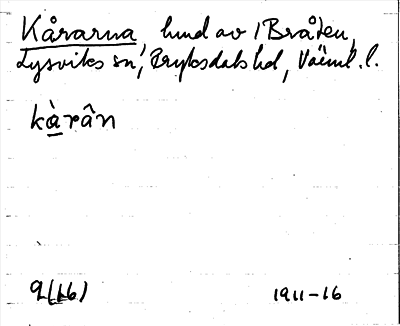 Kårarna, lund av 1 Bråten,
Lysviks sn, Fryksdals hd, Värml. l.
kàrân
9(16) 1911-16